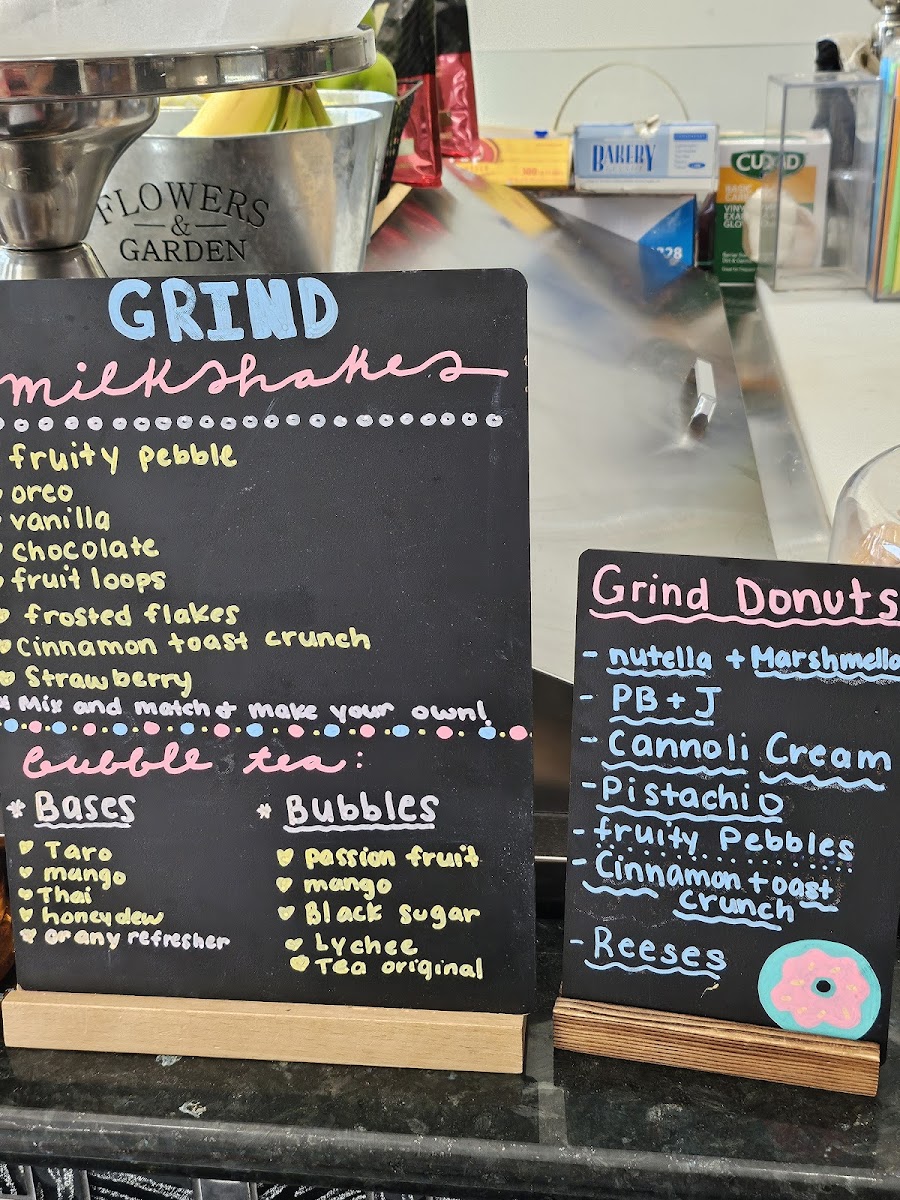 FLOWERS
&
GARDEN
BAKERY
CURAD
BASIC
VINYL
GRIND
milkshakes
fruity pebble
oreo
vanilla
chocolate
fruit loops
frosted flakes
Cinnamon toast crunch
Strawberry
Mix and match & make your own!
bubble tea:
* Bases
Taro
mango
Thai
honeydew
or any refresher
* Bubbles
passion fruit
mango
Black sugar
Lychee
Tea original
Grind Donuts
- nutella + Marshmello
- PB + J
- Cannoli Cream
- Pistachio
- fruity Pebbles
- Cinnamon toast
crunch
- Reeses